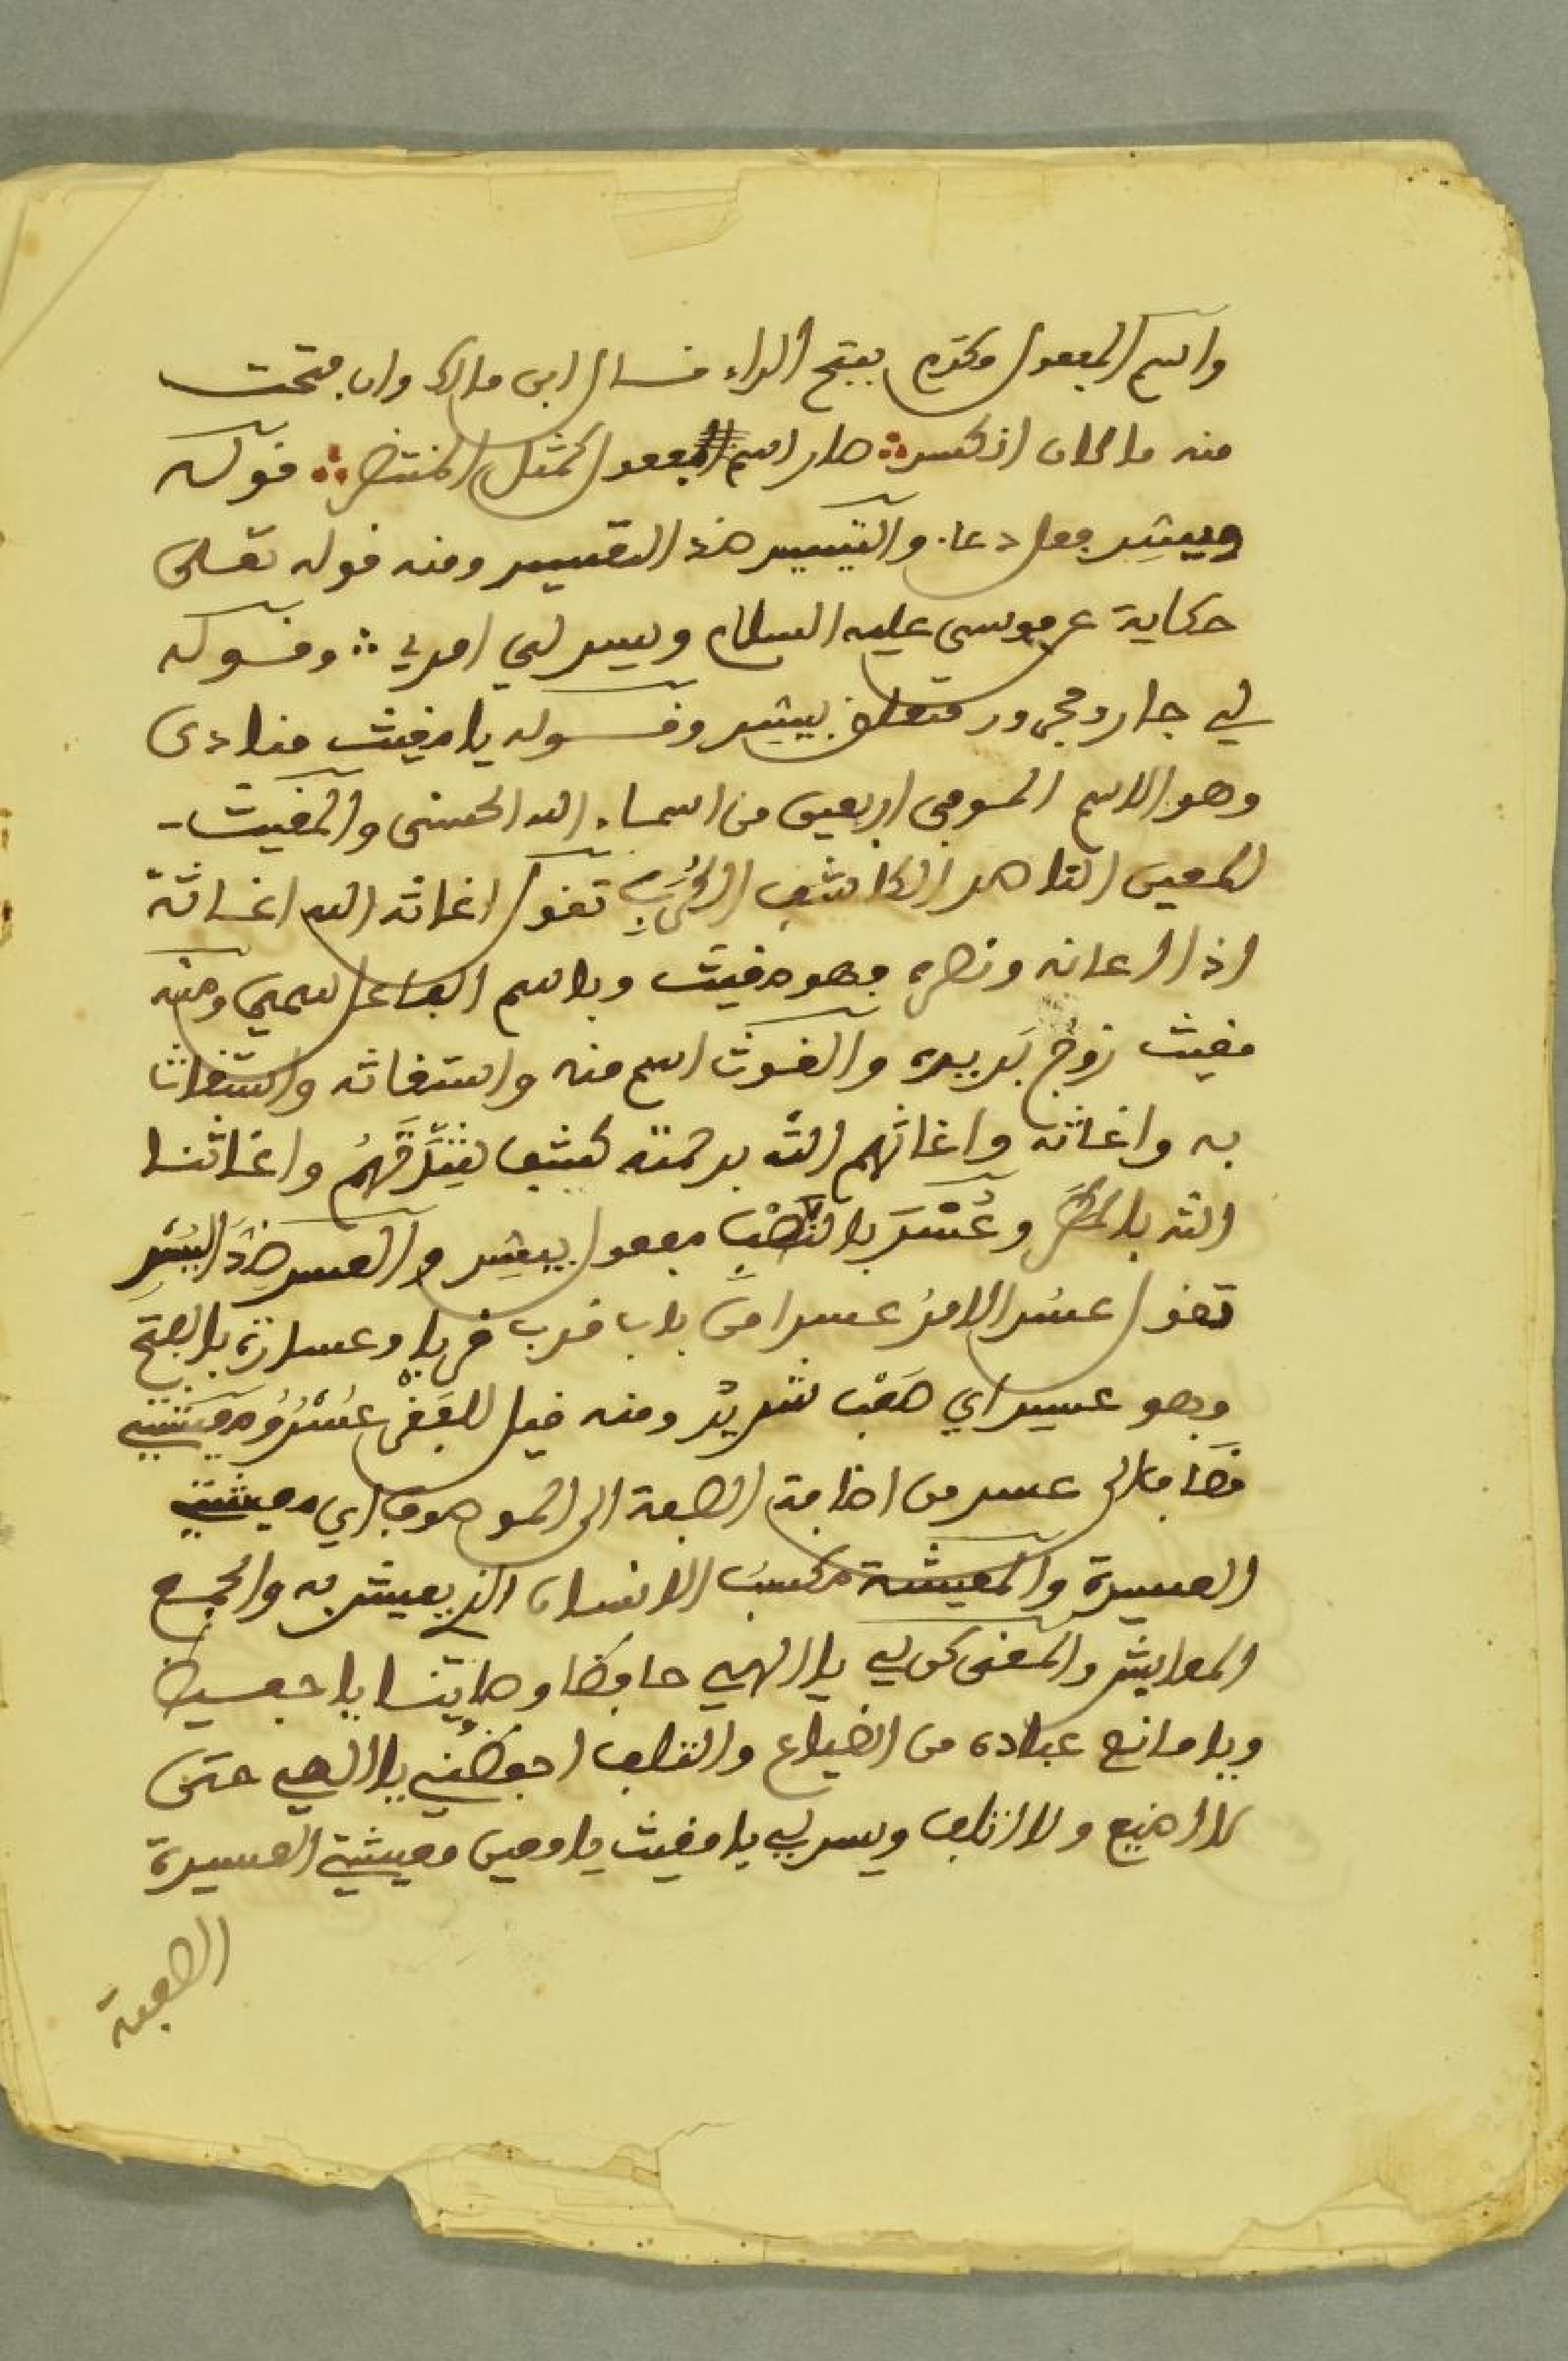 واسم المفعول مكرم بفتح الراء قال ابن مالك وان فتحت
منه ما كان انكسر ∴ صار اسم مفعول كمثل المنتظر ∴ قوله
ويسر فعل دعاء والتيسير ضد التعسير ومنه قوله تعلى
حكاية عن موسى عليه السلام ويسر لي امري ∴ وقوله
لي جار ومجرور متعلق بيسر وقوله يا مغيث منادى
وهو الاسم الموفي اربعين من اسماء الله الحسنى والمغيث
المعين الناصر الكاشف الكرب تقول اغاثه الله اغاثة
اذا اعانه ونصره فهو مغيث وباسم الفاعل سمي ومنه
مغيث زوج بريرة والغوث اسم منه واستغاثه واستغاث
به واغاثه واغاثهم الله برحمته كشف شدتهم واغاثنا
الله بالمطر وعسر بالنصب مفعول بيسر والعسر ضد اليسر
تقول عسر الامر عسرا من باب قرب قربا وعسارة بالفتح
فهو عسير اي صعب شديد ومنه قيل للفقر عسر ومعيشتي
مضاف الى عسر من اضافة الصفة الى الموصوف اي معيشتي
العسيرة والمعيشة مكسب الانسان الذي يعيش به والجمع
المعايش والمعنى كن لي يا الهي حافظا وصايتنا يا حفيظ
ويا مانع عباده من الضياع والتلف احفظني يا الهي حتى
لا اضيع ولا اتلف ويسر لي يا مغيث يا معين معيشتي العسيرة
الصعبة